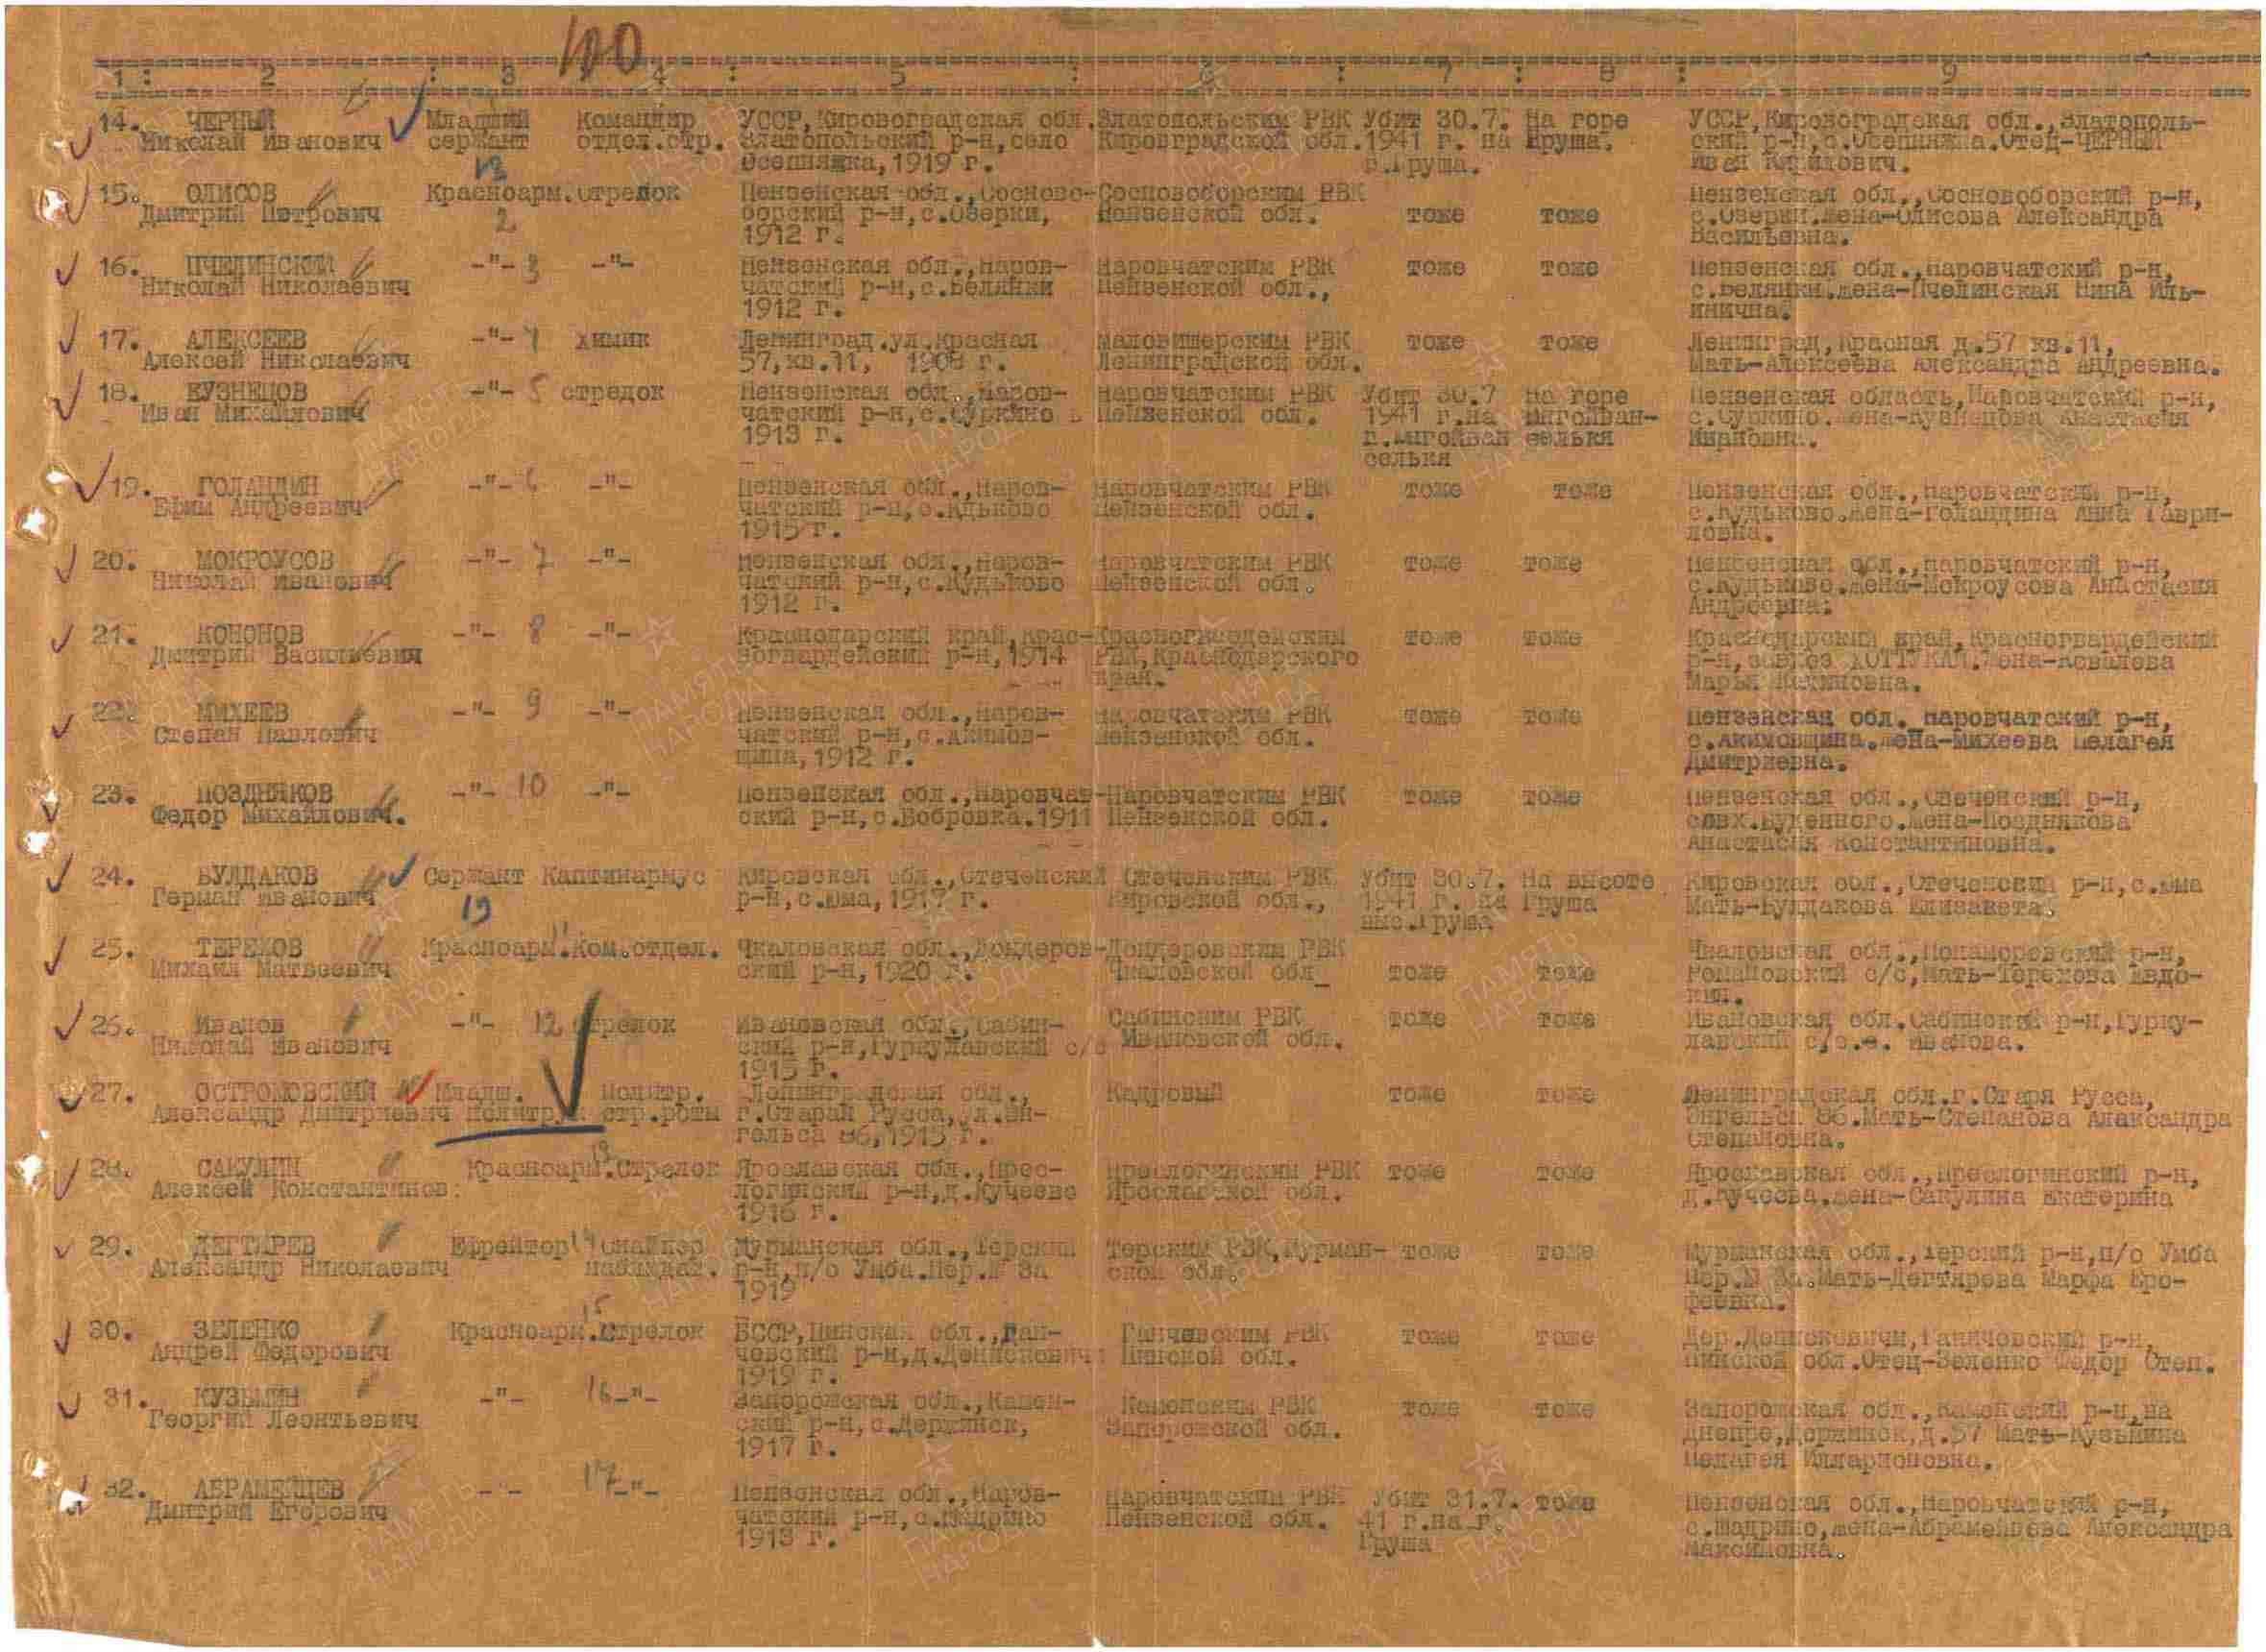 100
1 : 2 : 3 4 : 5 : 6 : 7 : 8 : 9
14. ЧЕРНЫЙ Младший Командир УССР, Кировоградская обл. Златопольским РВК Убит 30.7. На горе УССР, Кировоградская обл., Златополь-
Николай Иванович сержант отдел.стр. Златопольский р-н, село Кировградской обл. 1941 г. на Груша. ский р-н, с.Осепняжка.Отец-ЧЕРНЫЙ
13 Осепняжка, 1919 г. г.Груша. Иван
15. ОЛИСОВ Красноарм. Стрелок Пензенская обл., Сосново- Сосновоборским РВК Пензенская обл., Сосновоборский р-н,
Дмитрий Петрович 2 борский р-н, с.Озерки, Пензенской обл. тоже тоже с.Озерки.Жена-Олисова Александра
1912 г. Васильевна.
16. ПЧЕЛИНСКИЙ -"- 3 -"- Пензенская обл., Наров- Наровчатским РВК тоже тоже Пензенская обл., Наровчатский р-н,
Николай Николаевич чатский р-н, с.Белянки Пензенской обл., с.Белянки.Жена-Пчелинская Нина Иль-
1912 г. инична.
17. АЛЕКСЕЕВ -"- 4 химик Ленинград.ул.Красная Маловишерским РВК тоже тоже Ленинград, Красная д.57 кв.11,
Алексей Николаевич 57, кв.11, 1908 г. Ленинградской обл. Мать-Алексеева Александра Андреевна.
18. КУЗНЕЦОВ -"- 5 стрелок Пензенская обл., Наров- Наровчатским РВК Убит 30.7 На горе Пензенская область, Наровчатский р-н,
Иван Михайлович чатский р-н, с.Суркино Пензенской обл. 1941 г.на с.Суркино.Жена-Кузнецова Анастасия
1913 г. селькя Ивановна.
селькя
19. ГОЛАНДИН -"- 6 -"- Пензенская обл., Наров- Наровчатским РВК тоже тоже Пензенская обл., Наровчатский р-н,
Ефим Андреевич чатский р-н, Пензенской обл. с.Кудьково.Жена-Голандина Анна Гаври-
1915 г. ловна.
20. МОКРОУСОВ -"- 7 -"- Пензенская обл., Наров- Наровчатским РВК тоже тоже Пензенская обл., Наровчатский р-н,
Николай Иванович чатский р-н, с.Кудьково Пензенской обл. с.Кудьково.Жена-Мокроусова Анастасия
1912 г. Андреевна.
21. КОНОНОВ -"- 8 -"- Краснодарский край, Крас- Красногвардейским тоже тоже Краснодарский край, Красногвардейский
Дмитрий Васильевич ногвардейский р-н, 1914 РВК, Краснодарского р-н, Жена-Ковалева
край. Марья
22. МИХЕЕВ -"- 9 -"- Пензенская обл., Наров- Наровчатским РВК тоже тоже Пензенская обл. Наровчатский р-н,
Степан Павлович чатский р-н, с.Акимов- Пензенской обл. с.Акимовщина.Жена-Михеева Пелагея
щина, 1912 г. Дмитриевна.
23. ПОЗДНЯКОВ -"- 10 -"- Пензенская обл., Наровчат- Наровчатским РВК тоже тоже Пензенская обл., Свеченский р-н,
Федор Михайлович. ский р-н, с.Бобровка.1911 Пензенской обл. совх.Буденного.Жена-Позднякова
Анастасия Константиновна.
24. БУЛДАКОВ Сержант Каптинармус Кировская обл., Стеченский Стеченским РВК Убит 30.7. На высоте Кировская обл., Стеченский р-н, с.Юма
Герман Иванович 19 р-н, с.Юма, 1917 г. Кировской обл., 1941 г. на Груша Мать-Булдакова Елизавета.
выс.Груша
25. ТЕРЕХОВ Красноарм. 11 Ком.отдел. Чкаловская обл., Дондеров- Дондеровским РВК Чкаловская обл., Понаморевский р-н,
Михаил Матвеевич ский р-н, 1920 г. Чкаловской обл тоже тоже Романовский с/с, Мать-Терехова Евдо-
кия.
26. Иванов -"- 12 стрелок Ивановская обл., Сабин- Сабинским РВК тоже тоже Ивановская обл.Сабинский р-н, Гурку-
Николай Иванович ский р-н, Гуркулавский с/с Ивановской обл. лавский с/с. Иванова.
1915 г.
27. ОСТРОМОВСКИЙ Младш. Политр. Ленинградская обл., Кадровый тоже тоже Ленинградская обл.г.Старя Русса,
Александр Дмитриевич политрук стр.роты г.Старай Русса, ул.Эн- Энгельса 86.Мать-Степанова Александра
гельса 86, 1915 г. Степановна.
28. САКУЛИН Красноарм. 13 Стрелок Ярославская обл., Прес- Преслогинским РВК тоже тоже Ярославская обл., Преслогинский р-н,
Алексей Константинов. логинский р-н, д.Кучеево Ярославской обл. д.Кучеева.Жена-Сакулина Екатерина
1916 г.
29. ДЕГТЯРЕВ Ефрейтор 14 снайпер Мурманская обл., Терский Терским РВК, Мурман- тоже тоже Мурманская обл., Терский р-н, п/о Умба
Александр Николаевич наблюдат. р-н, п/о Умба.Пер.№ 3а ской обл. Пер.№ 3а.Мать-Дегтярева Марфа Еро-
1919 феевна.
30. ЗЕЛЕНКО Красноарм. 15 Стрелок БССР, Пинская обл., Ган- Ганчевским РВК тоже тоже Дер.Денисковичи, Ганичовский р-н,
Андрей Федорович чевский р-н, д.Денисковичи Пинской обл. Пинской обл.Отец-Зеленко Федор Степ.
1919 г.
31. КУЗЬМИН -"- 16 -"- Запорожская обл., Камен- Каменским РВК тоже тоже Запорожская обл., Каменский р-н, на
Георгий Леонтьевич ский р-н, с.Держинск, Запорожской обл. Днепре, Держинск, д.57 Мать-Кузьмина
1917 г. Пелагея Илларионовна.
32. АБРАМЕЙЦЕВ -"- 17 -"- Пензенская обл., Наров- Наровчатским РВК Убит 31.7. тоже Пензенская обл., Наровчатский р-н,
Дмитрий Егорович чатский р-н, с.Шадрино Пензенской обл. 41 г.на г. с.Шадрино, жена-Абрамейцева Александра
1913 г. Груша Максимовна.